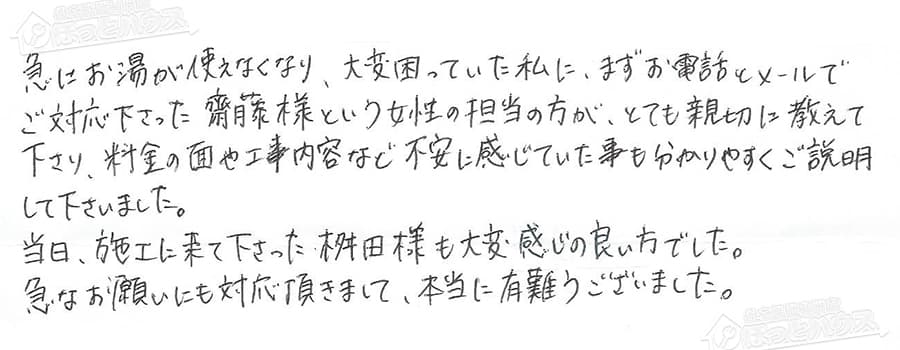 急にお湯が使えなくなり、大変困っていた私に、まずお電話とメールで
ご対応下さった齋藤様という女性の担当の方が、とても親切に教えて
下さり、料金の面や工事内容など不安に感じていた事も分かりやすくご説明
して下さいました。
当日、施工に来て下さった桝田様も大変感じの良い方でした。
急なお願いにも対応頂きまして、本当に有難うございました。
ほっとハウス
ほっとハウス